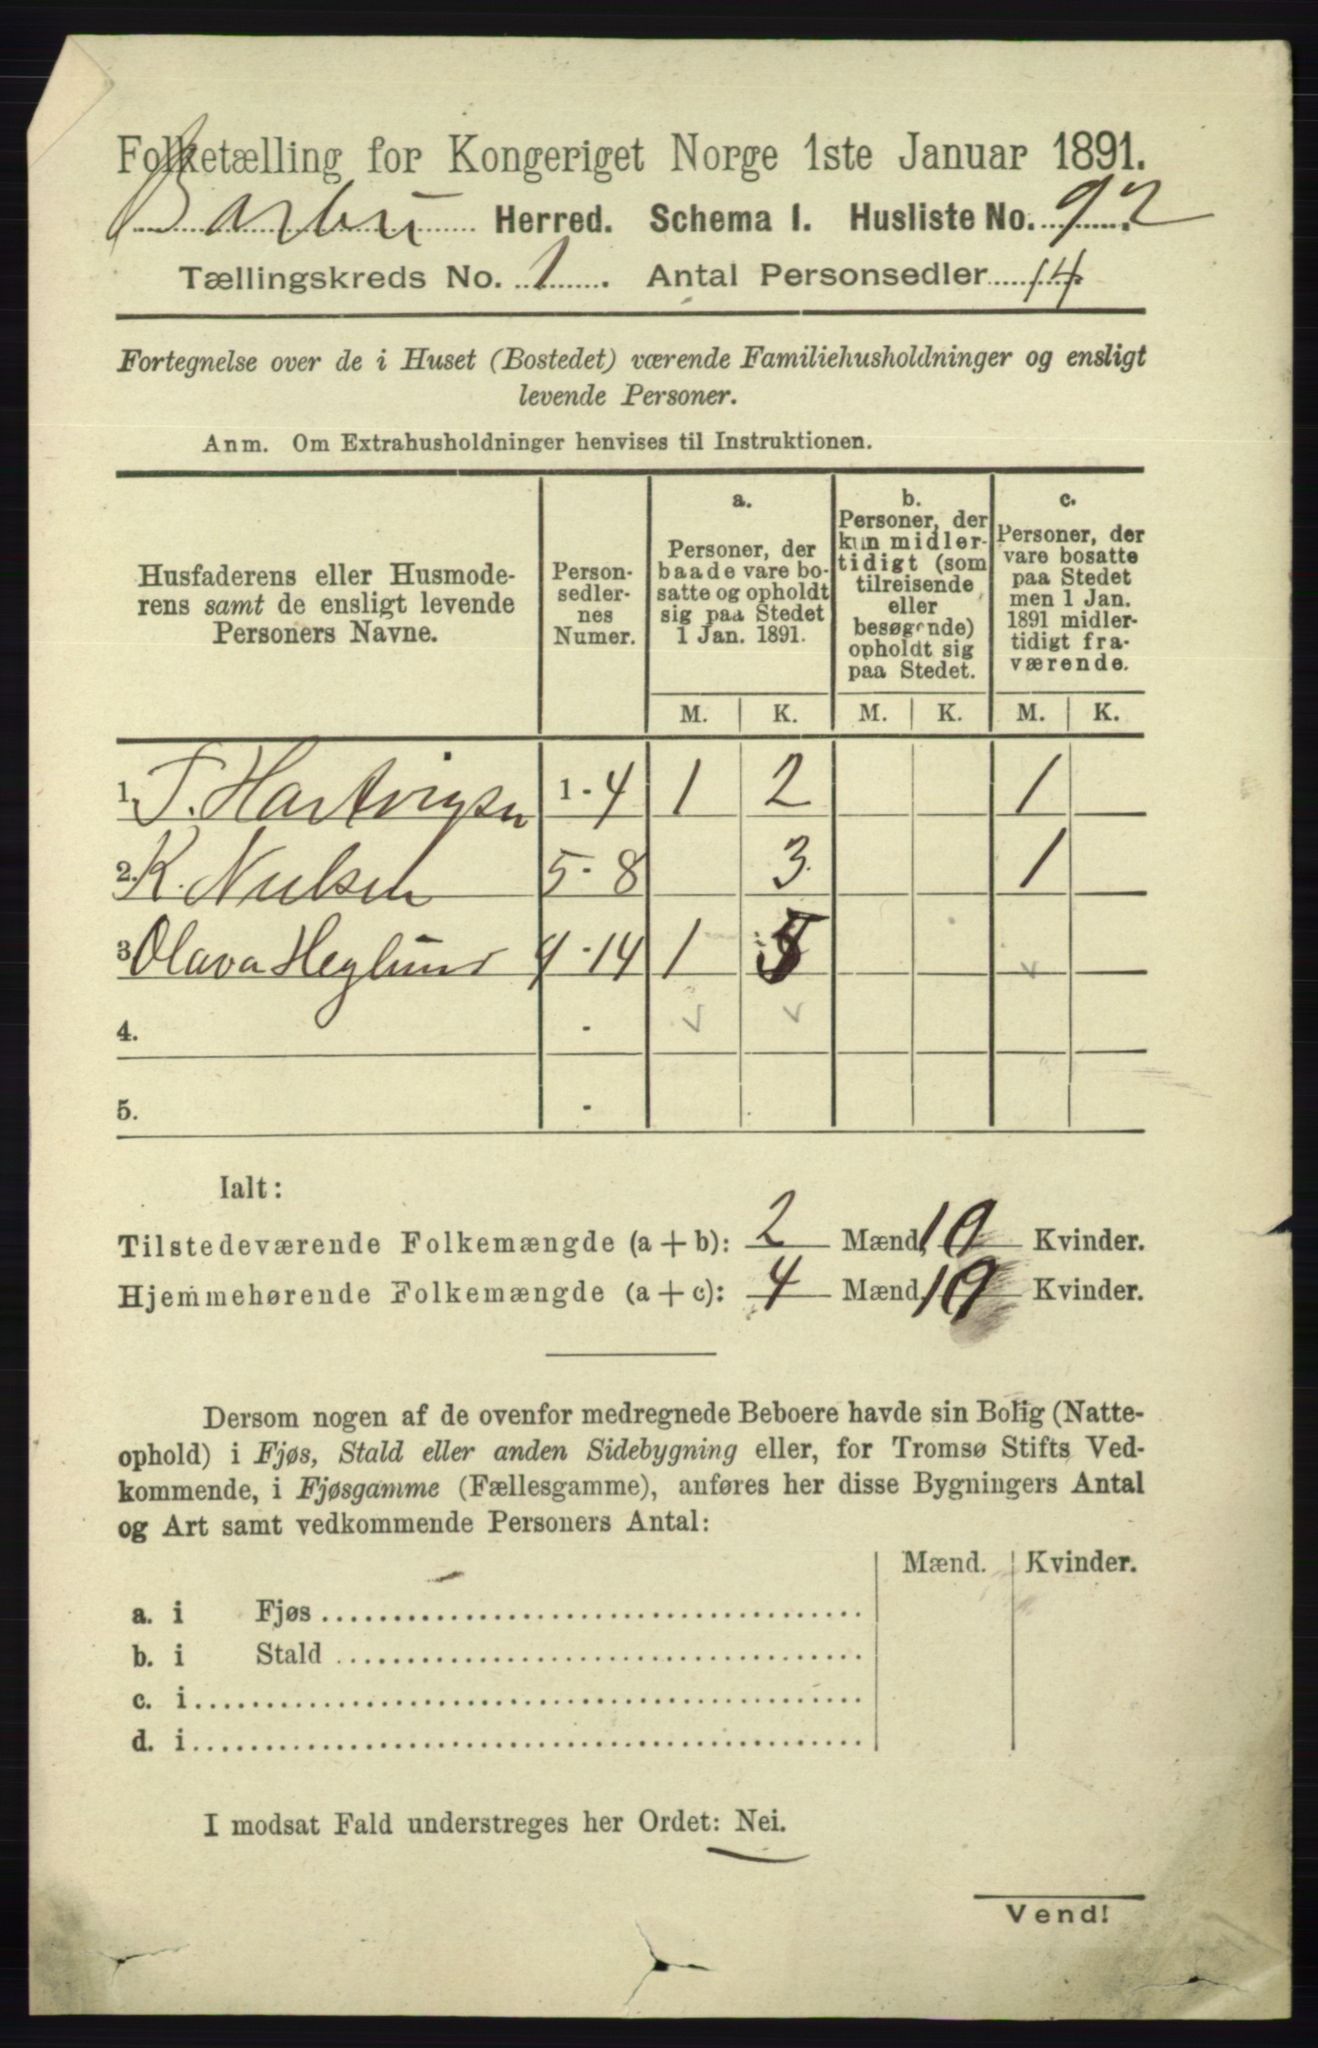 Folketælling for Kongeriget Norge 1ste Januar 1891.
Barbu Herred. Schema I. Husliste No. 92.
Tællingskreds No. 1. Antal Personsedler 14
Fortegnelse over de i Huset (Bostedet) værende Familiehusholdninger og ensligt
levende Personer.
Anm. Om Extrahusholdninger henvises til Instruktionen.
Husfaderens eller Husmode-
rens samt de ensligt levende
Personers Navne.
Person-
sedler-
nes
Numer.
a.
Personer, der
baade vare bo-
satte og opholdt
sig paa Stedet
1 Jan. 1891.
b.
Personer, der
kun midler-
tidigt (som
tilreisende
eller
besøgende)
opholdt sig
paa Stedet.
c.
Personer, der
vare bosatte
paa Stedet
men 1 Jan.
1891 midler-
tidigt fra-
værende.
M. K. M. K. M. K.
1. T. Hartvigsen 1-4 1 2 1
2. K. Nielsen 5-8 3 1
3. Olava Heglund 9-14 1 5
4. -
5. -
Ialt:
Tilstedeværende Folkemængde (a + b): 2 Mænd, 10 Kvinder.
Hjemmehørende Folkemængde (a + c): 4 Mænd, 10 Kvinder.
Dersom nogen af de ovenfor medregnede Beboere havde sin Bolig (Natte-
ophold) i Fjøs, Stald eller anden Sidebygning eller, for Tromsø Stifts Ved-
kommende, i Fjøsgamme (Fællesgamme), anføres her disse Bygningers Antal
og Art samt vedkommende Personers Antal:
Mænd. Kvinder.
a. i Fjøs
b. i Stald
c. i
d. i
I modsat Fald understreges her Ordet: Nei.
Vend!